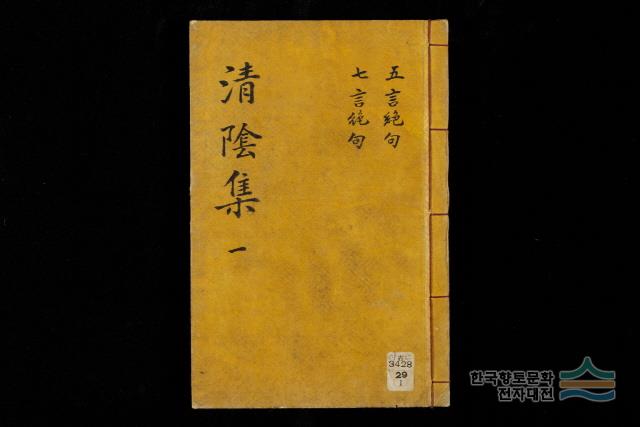 五言絶句
七言絶句
清陰集 一
古
3428
29
1
한국향토문화
전자대전